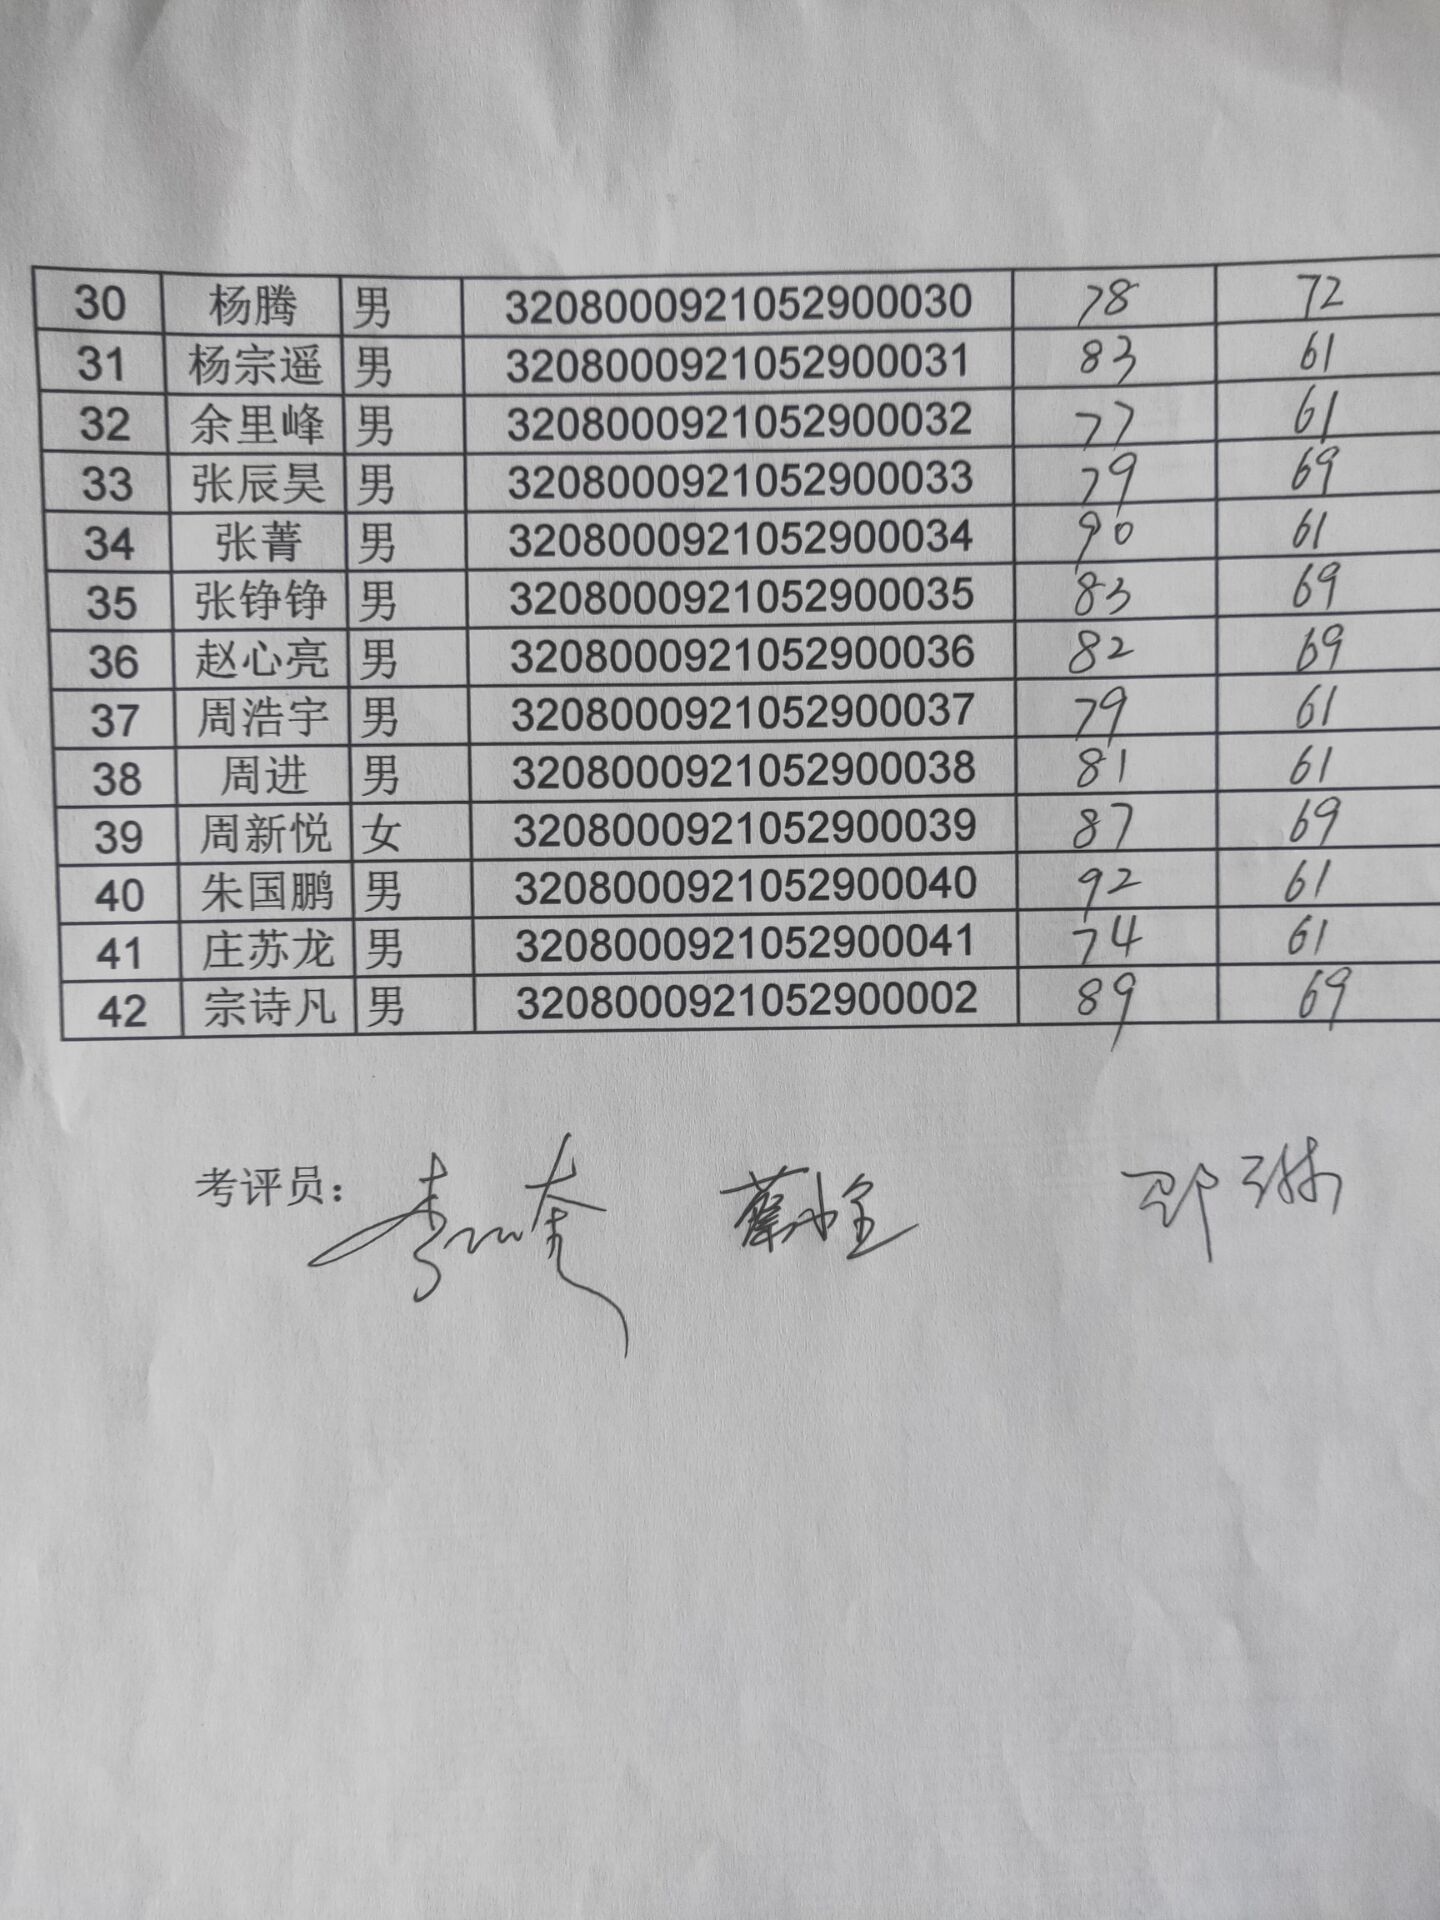 30 杨腾 男 3208000921052900030 78 72
31 杨宗遥 男 3208000921052900031 83 61
32 余里峰 男 3208000921052900032 77 61
33 张辰昊 男 3208000921052900033 79 69
34 张菁 男 3208000921052900034 90 61
35 张铮铮 男 3208000921052900035 83 69
36 赵心亮 男 3208000921052900036 82 69
37 周浩宇 男 3208000921052900037 79 61
38 周进 男 3208000921052900038 81 61
39 周新悦 女 3208000921052900039 87 69
40 朱国鹏 男 3208000921052900040 92 61
41 庄苏龙 男 3208000921052900041 74 61
42 宗诗凡 男 3208000921052900002 89 69
考评员：